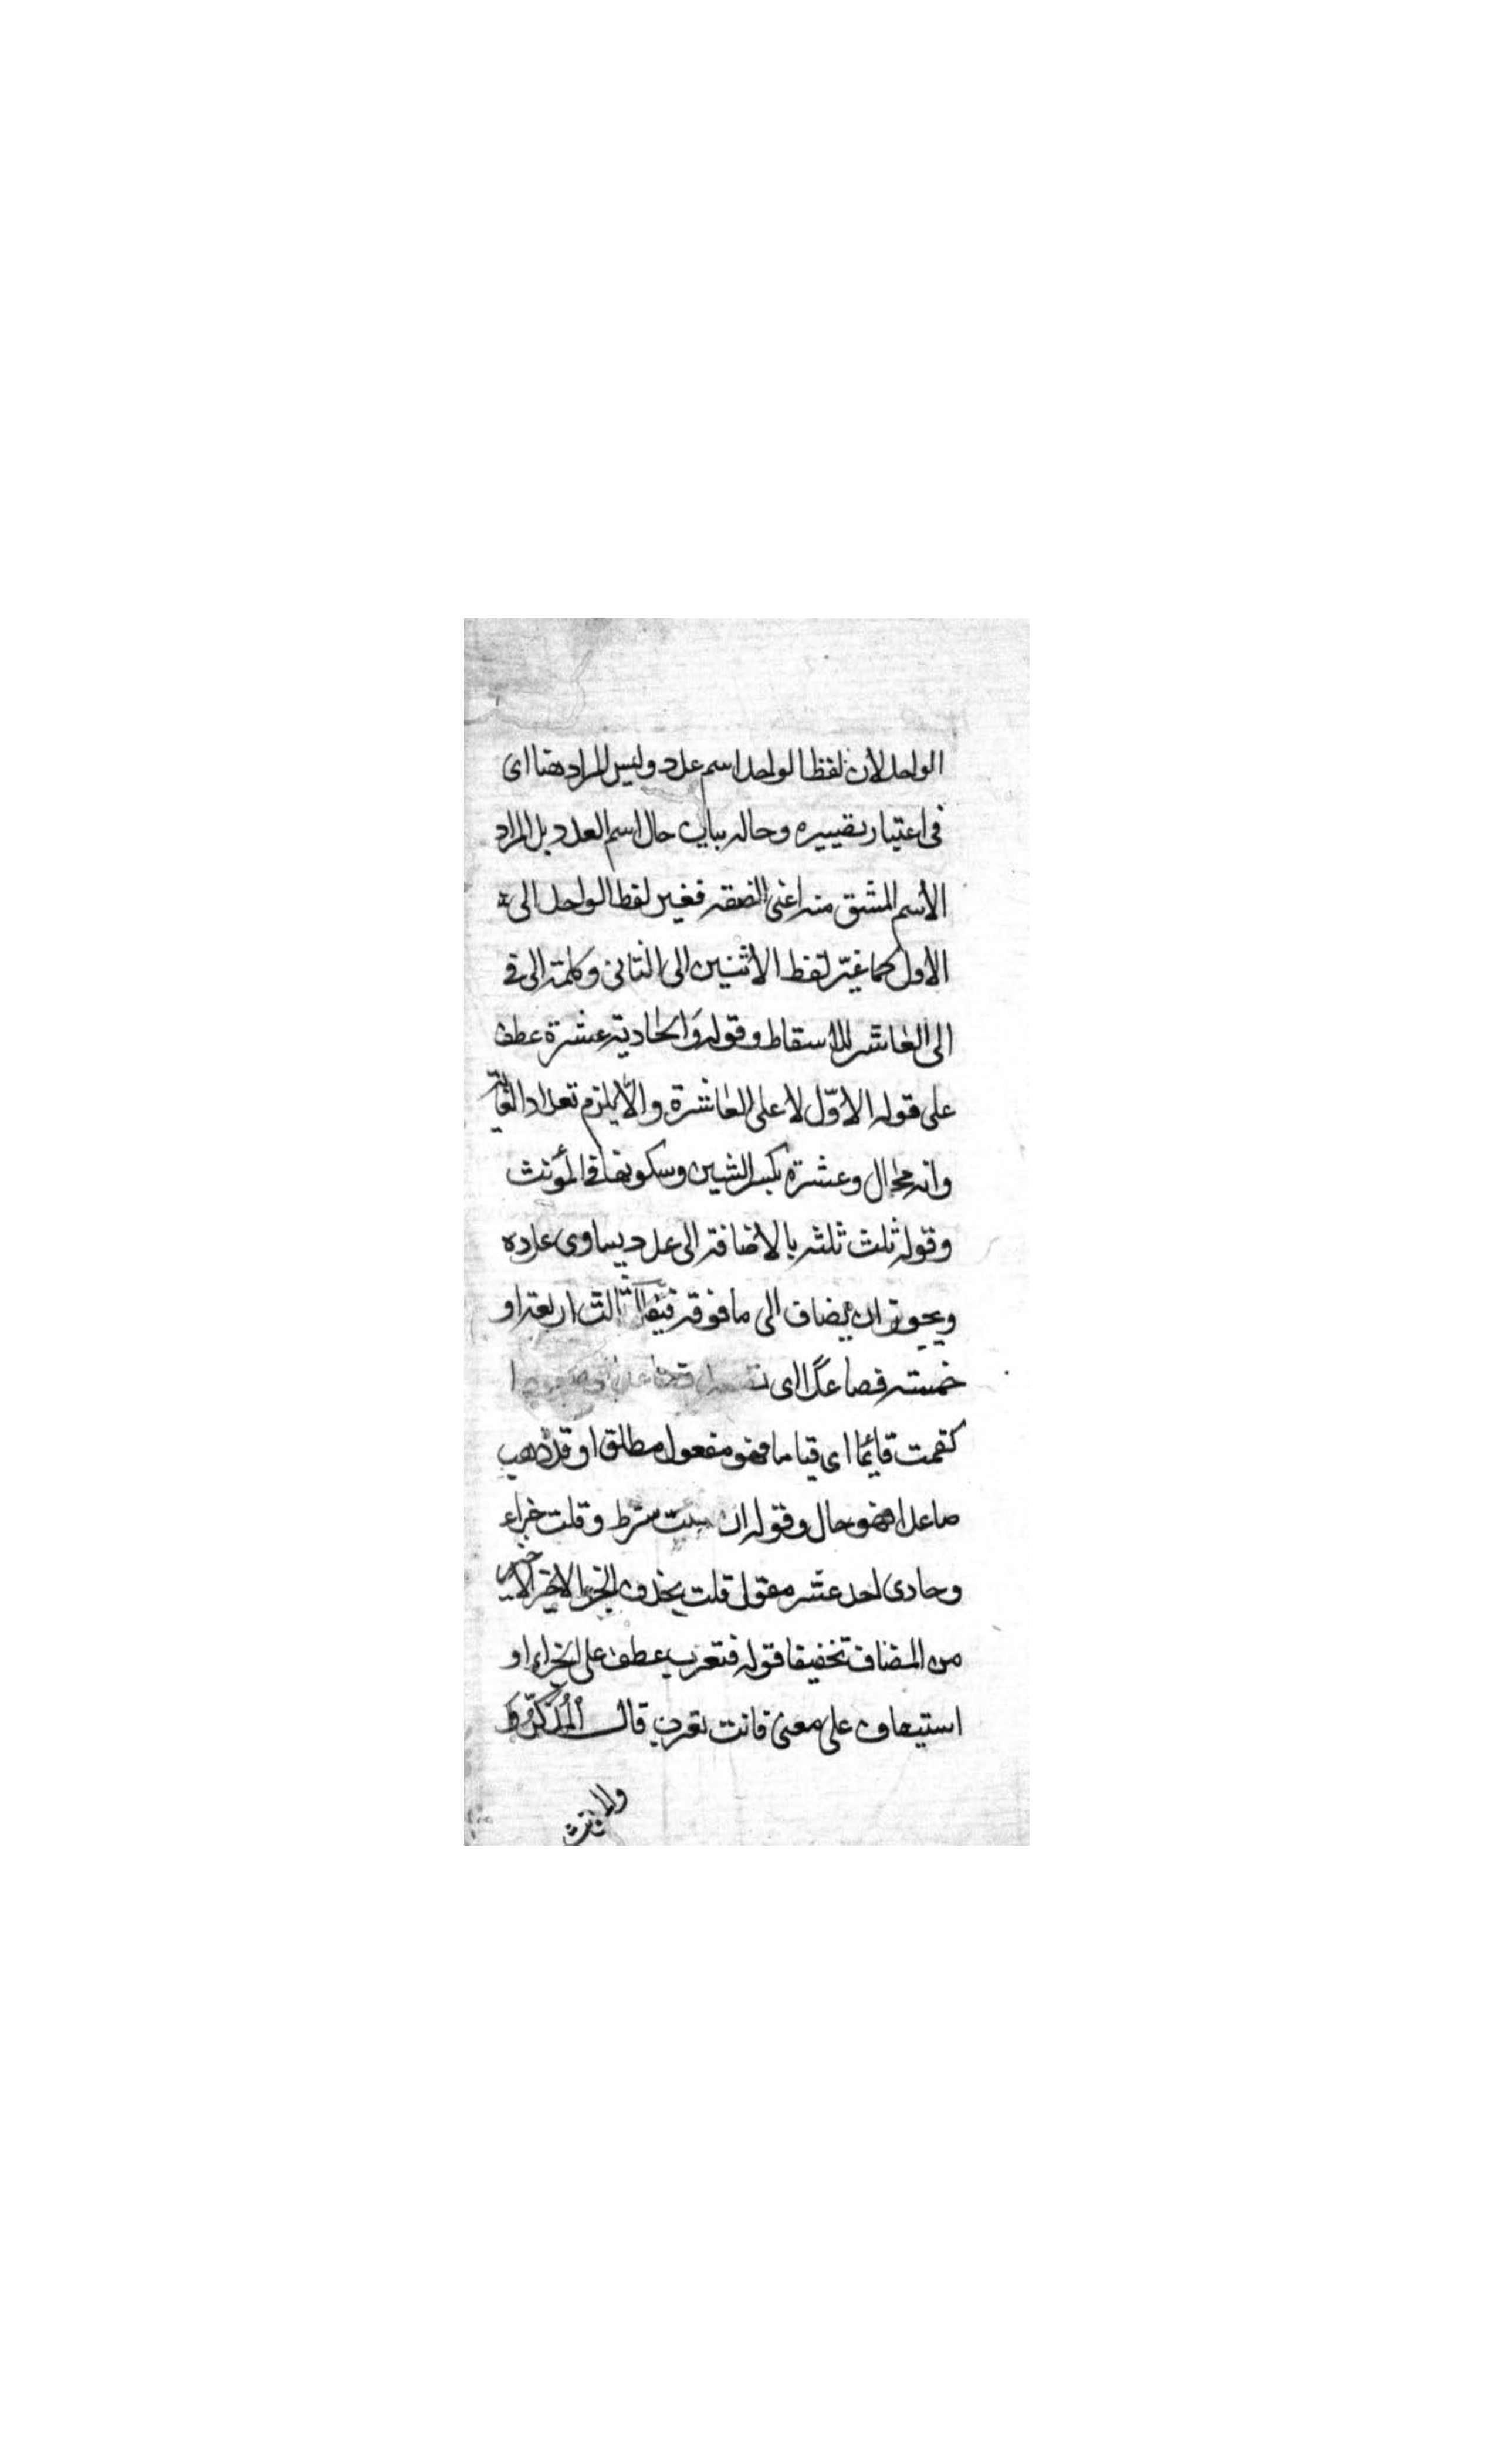 الواحد لان لفظ الواحد اسم عدد وليس المراد هنا اى
فى اعتبار تصييره وحاله ببيان حال اسم العدد بل المراد
الاسم المشتق منه اعنى الصفة فغير لفظ الواحد الى
الاول كما غيّر لفظ الاثنين الى الثانى وكلمة الى فى
الى العاشر للاسقاط وقوله وَالحادية عشرة عطف
على قوله الاوّل لا على العاشرة والّا يلزم تعداد الغاية
وانه محال وعشرة بكسر الشين وسكونها فى المؤنث
وقوله ثلث ثلثه بالاضافة الى عدد يساوى عدده
ويجوز ان يضاف الى ما فوقه فيقال ثالث اربعة او
خمسة فصاعدًا اى
كقمت قائمًا اى قياما فهو مفعول مطلق او قد ذهب
صاعدا فهو حال وقوله ان شئت شرط وقلت جزاء
وحادى احد عشر مقول قلت بحذف الجزء الاخير الاخير
من المضاف تخفيفا قوله فتعرب عطف على الجزاء او
استيناف على معنى فانت تعرب قال المُذكّرُ وَ
والمؤنث